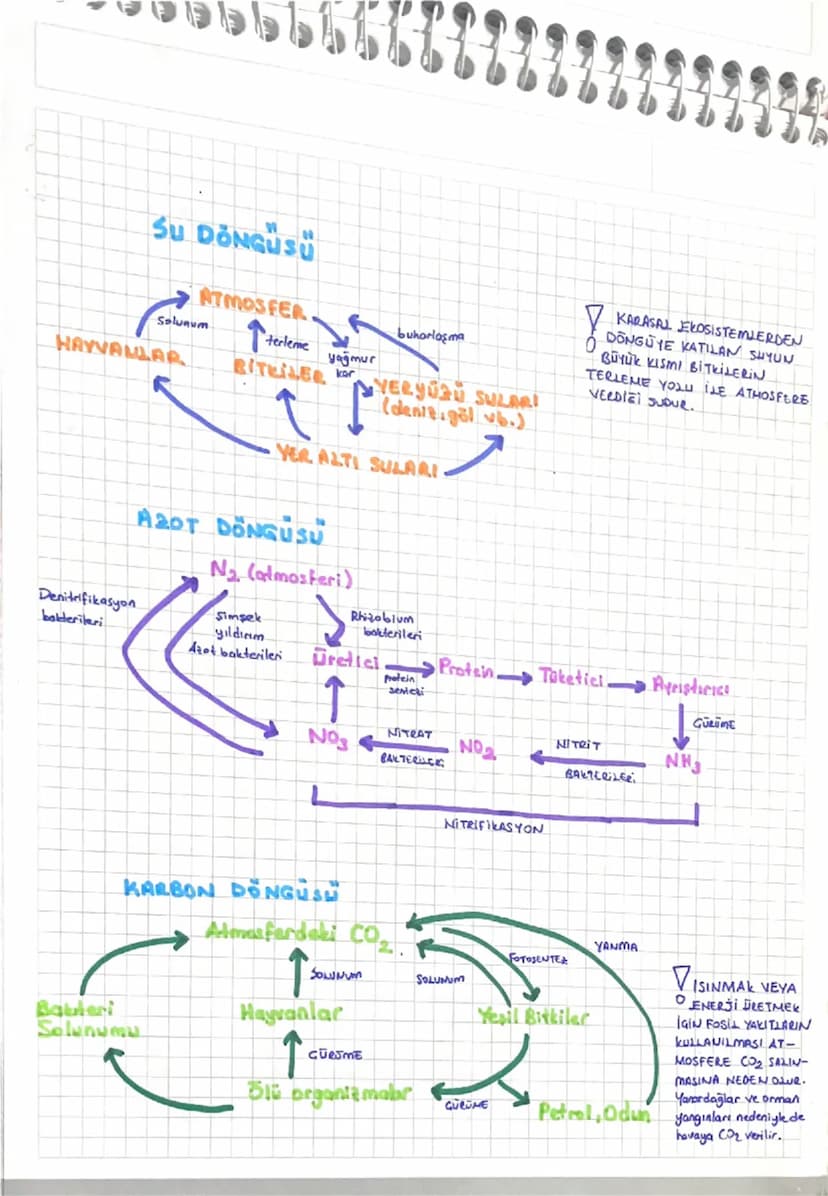 SU DÖNGÜSÜ
ATMOSFER
solunum
terleme
buharlaşma
HAYVANLAR
BİTKİLER
yağmur
kar
YERYÜZÜ SULARI
(deniz, göl vb.)
YER ALTI SULARI
! KARASAL EKOSİSTEMLERDEN
DÖNGÜYE KATILAN SUYUN
BÜYÜK KISMI BİTKİLERİN
TERLEME YOLU İLE ATMOSFERE
VERDİĞİ SUDUR.
AZOT DÖNGÜSÜ
N2 (atmosferi)
Denitrifikasyon
bakterileri
Şimşek
yıldırım
Azot bakterileri
Rhizobium
bakterileri
Üretici
protein
sentezi
Protein
Tüketici
Ayrıştırıcı
ÇÜRÜME
NO3
NİTRAT
BAKTERİLERİ
NO2
NİTRİT
BAKTERİLERİ
NH3
NİTRİFİKASYON
KARBON DÖNGÜSÜ
Atmosferdeki CO2
YANMA
FOTOSENTEZ
SOLUNUM
SOLUNUM
Bakteri
Solunumu
Hayvanlar
Yeşil Bitkiler
ÇÜRÜME
Ölü organizmalar
ÇÜRÜME
Petrol, Odun
! ISINMAK VEYA
ENERJİ ÜRETMEK
İÇİN FOSİL YAKITLARIN
KULLANILMASI AT-
MOSFERE CO2 SALIN-
MASINA NEDEN OLUR.
Yanardağlar ve orman
yangınları nedeniyle de
havaya CO2 verilir.